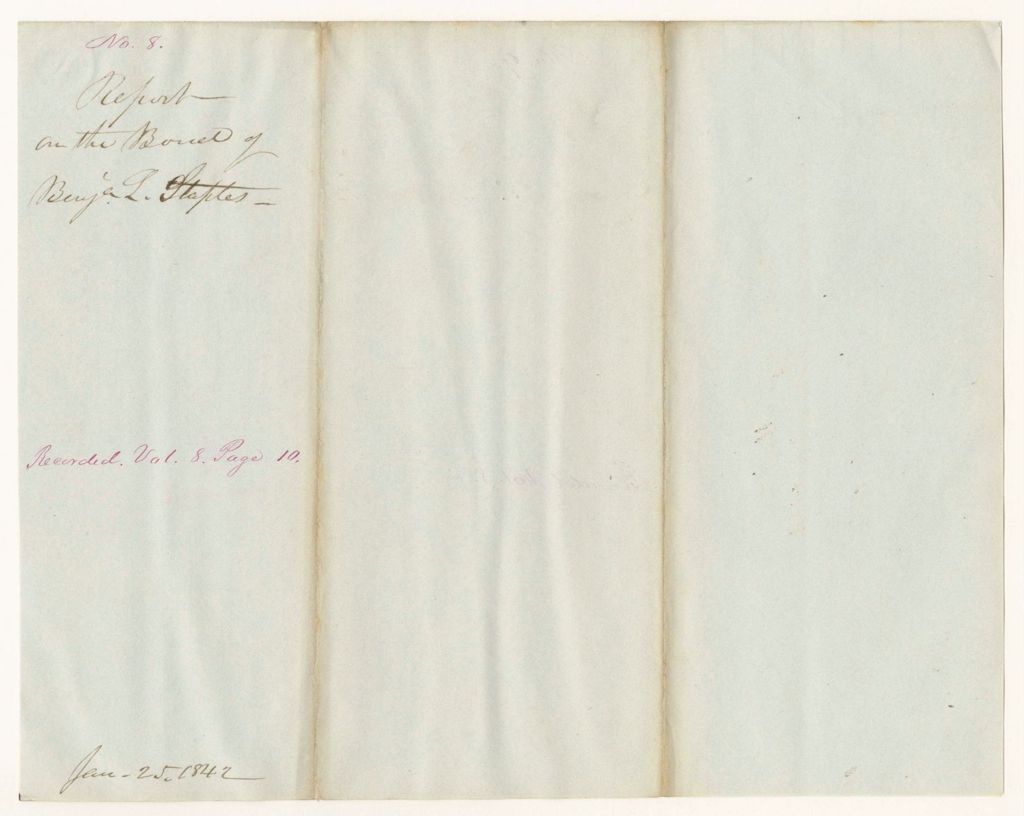 No. 8.
Report
on the Bond of
Benja L. Staples
Recorded. Vol. 8. Page 10.
Jan - 25. 1842